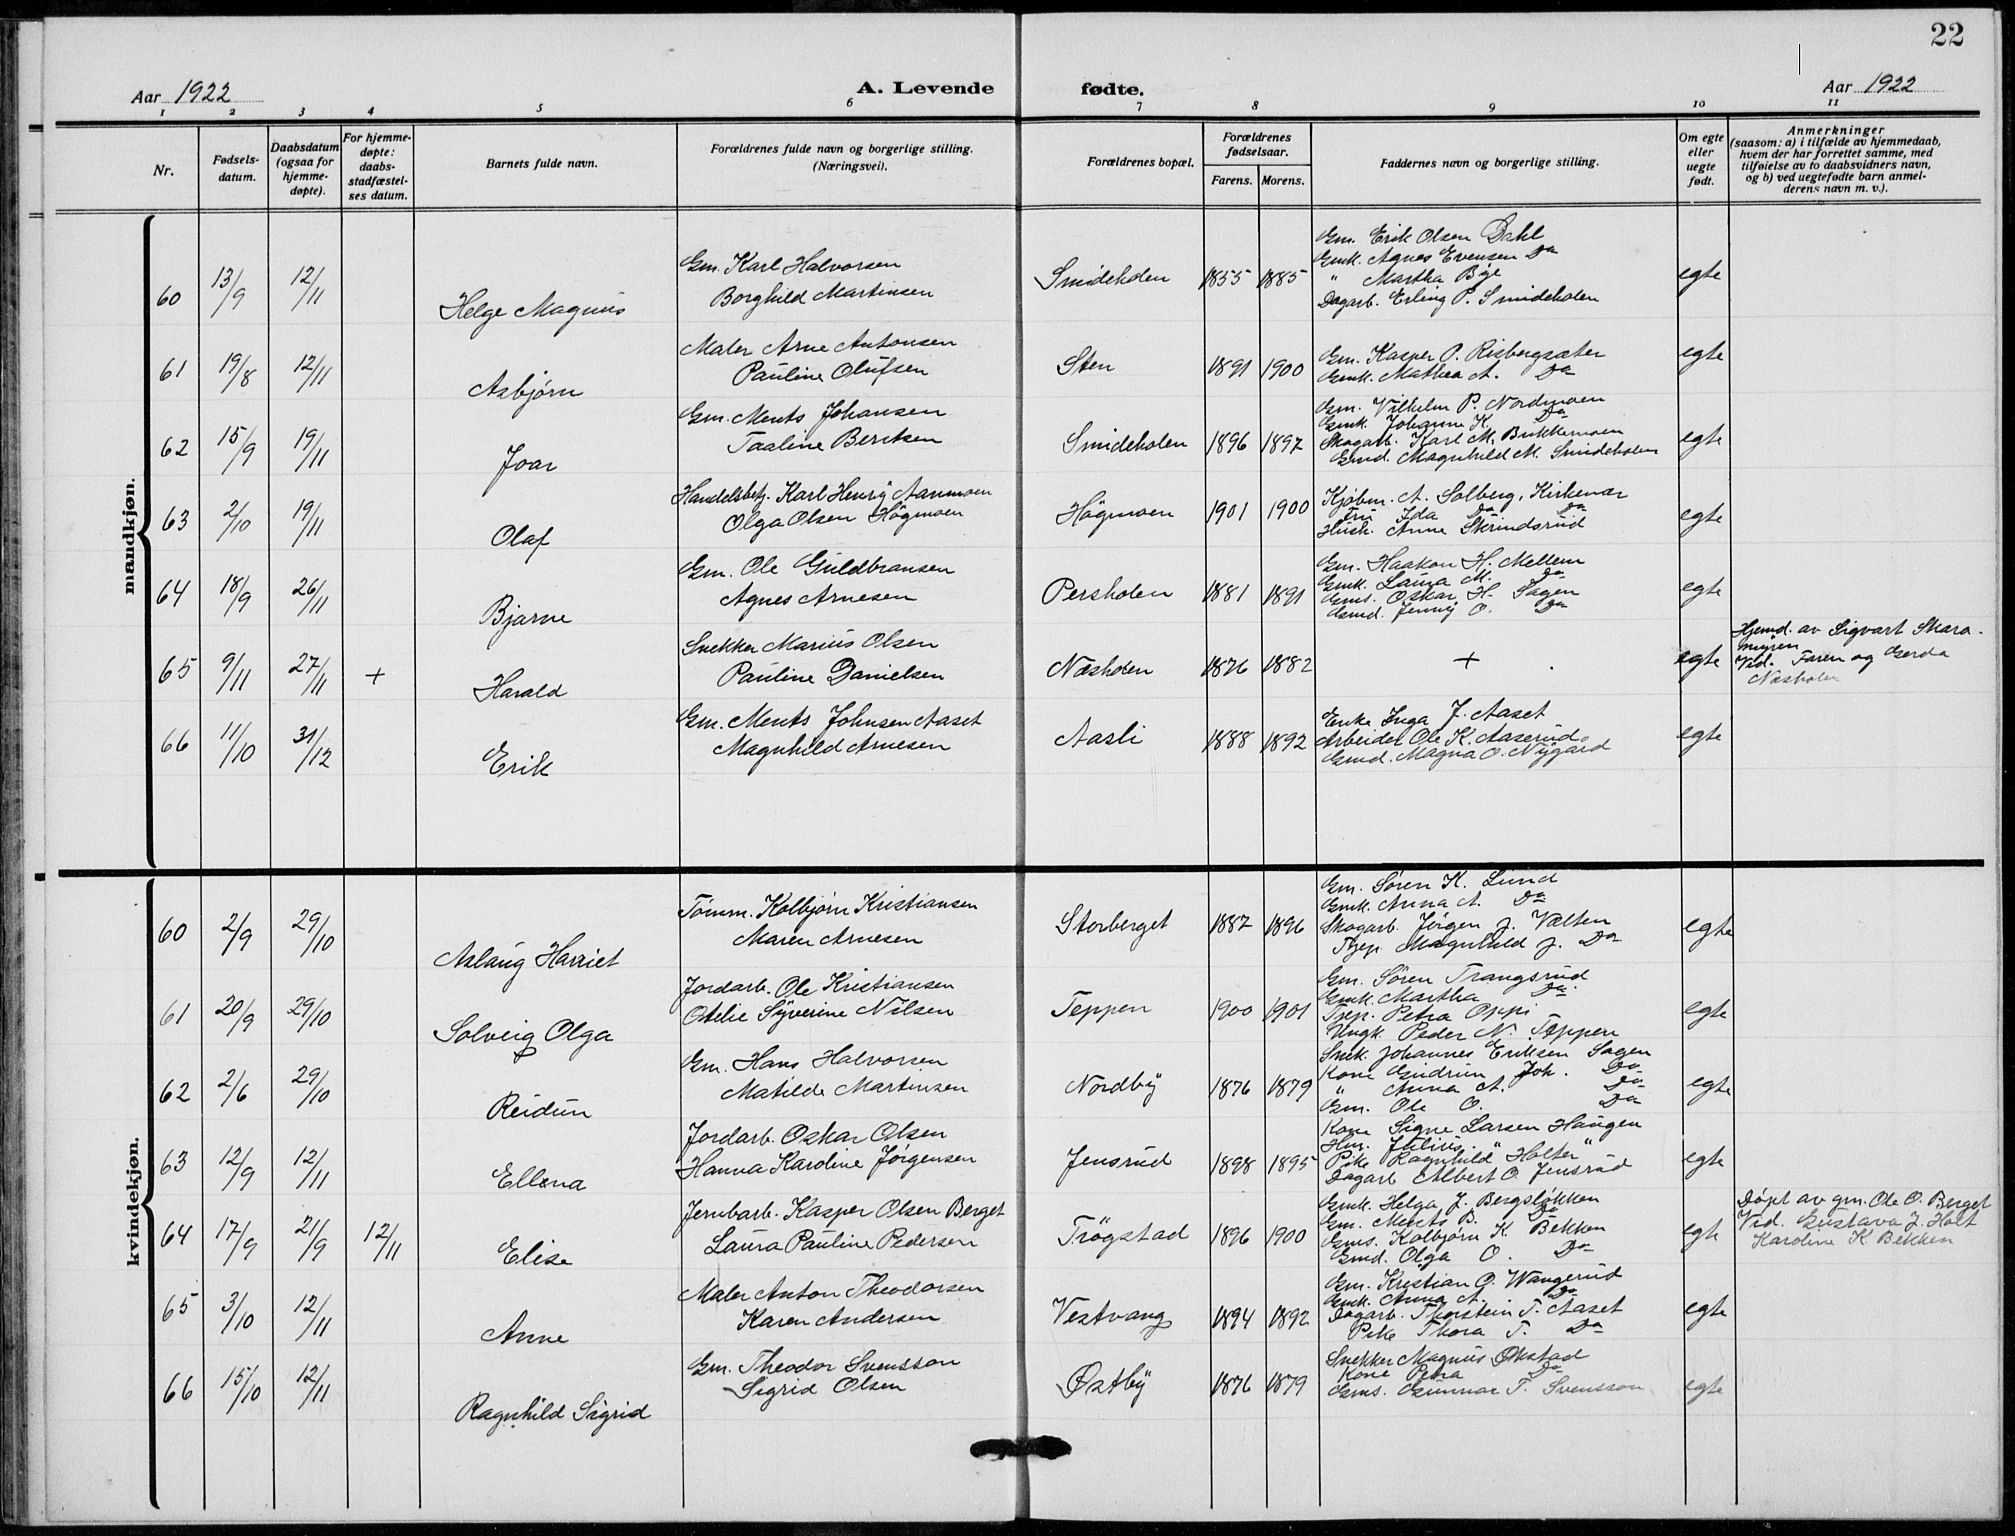 22
Aar 1922
A. Levende fødte.
Aar 1922
1 2 3 4 5 6 7 8 9 10 11
Nr.
Fødsels-
datum.
Daabsdatum
(ogsaa for
hjemme-
døpte).
For hjemme-
døpte:
daabs-
stadfæstel-
ses datum.
Barnets fulde navn.
Forældrenes fulde navn og borgerlige stilling.
(Næringsvei).
Forældrenes bopæl.
Forældrenes
fødselsaar.
Farens. Morens.
Faddernes navn og borgerlige stilling.
Om egte
eller
uegte
født.
Anmerkninger
(saasom: a) i tilfælde av hjemmedaab,
hvem der har forrettet samme, med
tilføielse av to daabsvidners navn,
og b) ved uegtefødte barn anmel-
derens navn m. v.).
mandkjøn.
60 13/9 12/11 Helge Magnus
Gm. Karl Halvorsen
Borghild Martinsen
Smideholen 1855 1885
Gm. Erik Olsen Dahl
Gmk. Agnes Evensen Do
" Martha Bye
Dagarb. Erling P. Smideholen
egte
61 19/8 12/11 Asbjørn
Maler Arne Antonsen
Pauline Olufsen
Sten 1891 1900
Gm. Kasper P. Risbergsæter
Gmk. Mathea A. Do
egte
62 15/9 19/11 Joar
Gm. Ments Johansen
Taaline Berntsen
Smideholen 1896 1897
Gm. Vilhelm P. Nordmoen
Gmk. Johanne K. Do
Skogarb. Karl M. Bukkemoen
Gmd. Magnhild M. Smideholen
egte
63 2/10 19/11 Olaf
Handelsbetj. Karl Henry Aanmoen
Olga Olsen Högmoen
Högmoen 1901 1900
Kjøbm. A. Solberg, Kirkenær
Fru Ida Do Do
Hush. Anne Skrindsrud
egte
64 18/9 26/11 Bjarne
Gm. Ole Guldbransen
Agnes Arnesen
Persholen 1881 1891
Gm. Haakon H. Mellem
Gmk. Laura M. Do
Gms. Oskar H. Sagen
Gmd. Jenny O. Do
egte
65 9/11 27/11 + Harald
Snekker Marius Olsen
Pauline Danielsen
Næsholen 1876 1882
+
egte
Hjemd. av Sigvart Skara-
myren
Vid. Faren og Gerda
Næsholen
66 11/10 31/12 Erik
Gm. Ments Johnsen Aaset
Magnhild Arnesen
Aasli 1888 1892
Enke Inga J. Aaset
Arbeider Ole K. Aaserud
Gmd. Magna O. Nygard
egte
kvindekjøn.
60 2/9 29/10 Aslaug Harriet
Tömm. Kolbjörn Kristiansen
Maren Arnesen
Storberget 1887 1896
Gm. Søren K. Lund
Gmk. Anna A. Do
Skogarb. Jörgen J. Valten
Tjep. Magnhild J. Do
egte
61 20/9 29/10 Solveig Olga
Jordarb. Ole Kristiansen
Otelie Syverine Nilsen
Teppen 1900 1901
Gm. Søren Trangsrud
Gmk. Martha Do
Tjep. Petra Oppi
Ungk. Peder N. Tæppen
egte
62 2/6 29/10 Reidun
Gm. Hans Halvorsen
Matilde Martinsen
Nordby 1876 1879
Snek. Johannes Eriksen Sagen
Kone Gudrun Joh. Do
" Anna A. Do
Gm. Ole O. Do
egte
63 12/9 12/11 Ellena
Jordarb. Oskar Olsen
Hanna Karoline Jörgensen
Jensrud 1898 1895
Kone Signe Larsen Haugen
Hm. Julius " "
Pike Ragnhild Holter
Dagarb. Albert O. Jensrud
egte
64 17/9 21/9 12/11 Elise
Jernbarb. Kasper Olsen Berget
Laura Pauline Pedersen
Trögstad 1896 1900
Gmk. Helga J. Bergsløkken
Gm. Ments B. Do
Gms. Kolbjørn K. Bekken
Gmd. Olga O. Do
egte
Döpt av gm. Ole O. Berget
Vid. Gustava J. Holt
Karoline K. Bekken
65 3/10 12/11 Anne
Maler Anton Theodorsen
Karen Andersen
Vestvang 1894 1892
Gm. Kristian O. Wangerud
Gmk. Anna A. Do
Dagarb. Thorstein T. Aaset
Pike Thora T. Do
egte
66 15/10 12/11 Ragnhild Sigrid
Gm. Theodor Svensson
Sigrid Olsen
Østby 1876 1879
Snekker Magnus Økstad
Kone Petra Do
Gms. Gunnar T. Svensson
egte